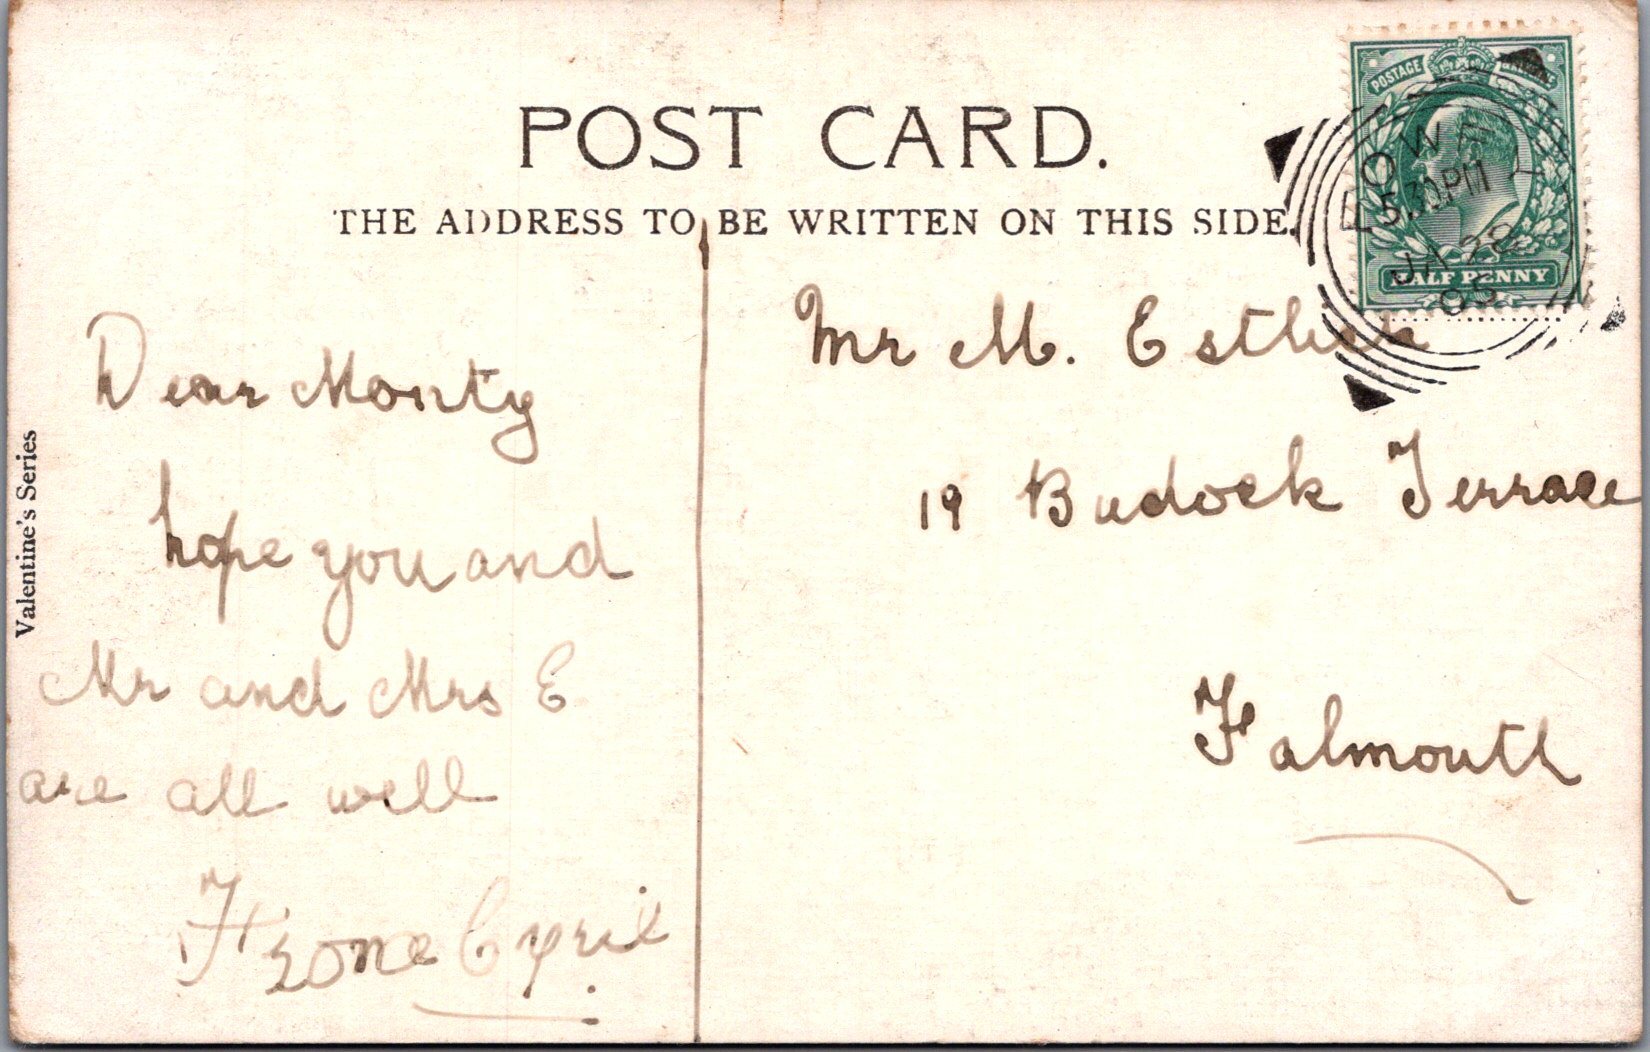 POST CARD.
THE ADDRESS TO BE WRITTEN ON THIS SIDE.
POSTAGE
HALF PENNY
FOWEY
5.30PM
JA 28
05
Valentine's Series
Dear Monty
hope you and
Mr and Mrs E
are all well
From Cyril
Mr M. Esther
19 Budock Terrace
Falmouth